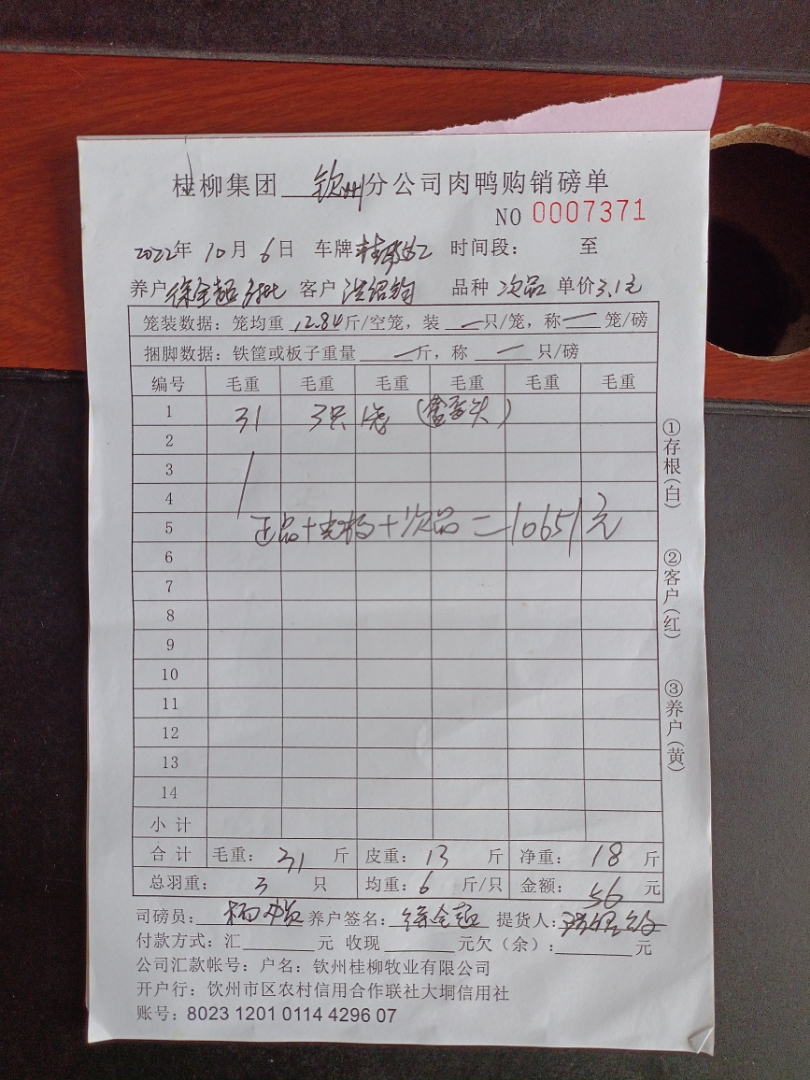 桂柳集团 钦州 分公司肉鸭购销磅单
NO 0007371
2022年 10月 6日 车牌 时间段: 至
养户 徐全超 3批 客户 洪绍钧 品种 次品 单价 3.1元
笼装数据:笼均重 12.84斤/空笼,装 一 只/笼,称 一 笼/磅
捆脚数据:铁筐或板子重量 一 斤,称 一 只/磅
编号 毛重 毛重 毛重 毛重 毛重 毛重
1 31 3只 1笼
2
3
4
5 正品+ +次品=10651元
6
7
8
9
10
11
12
13
14
小计
合计 毛重: 31 斤 皮重: 13 斤 净重: 18 斤
总羽重: 3 只 均重: 6 斤/只 金额: 56 元
司磅员: 养户签名: 徐全超 提货人:
付款方式:汇 元 收现 元欠(余): 元
公司汇款帐号:户名:钦州桂柳牧业有限公司
开户行:钦州市区农村信用合作联社大垌信用社
账号:8023 1201 0114 4296 07
①存根(白)
②客户(红)
③养户(黄)